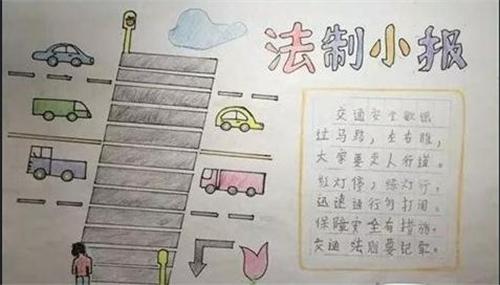 法制小报
交通安全歌谣
过马路，左右瞧，
大家要走人行道。
红灯停，绿灯行，
迅速通行勿打闹。
保障安全有措施，
交通法则要记牢。